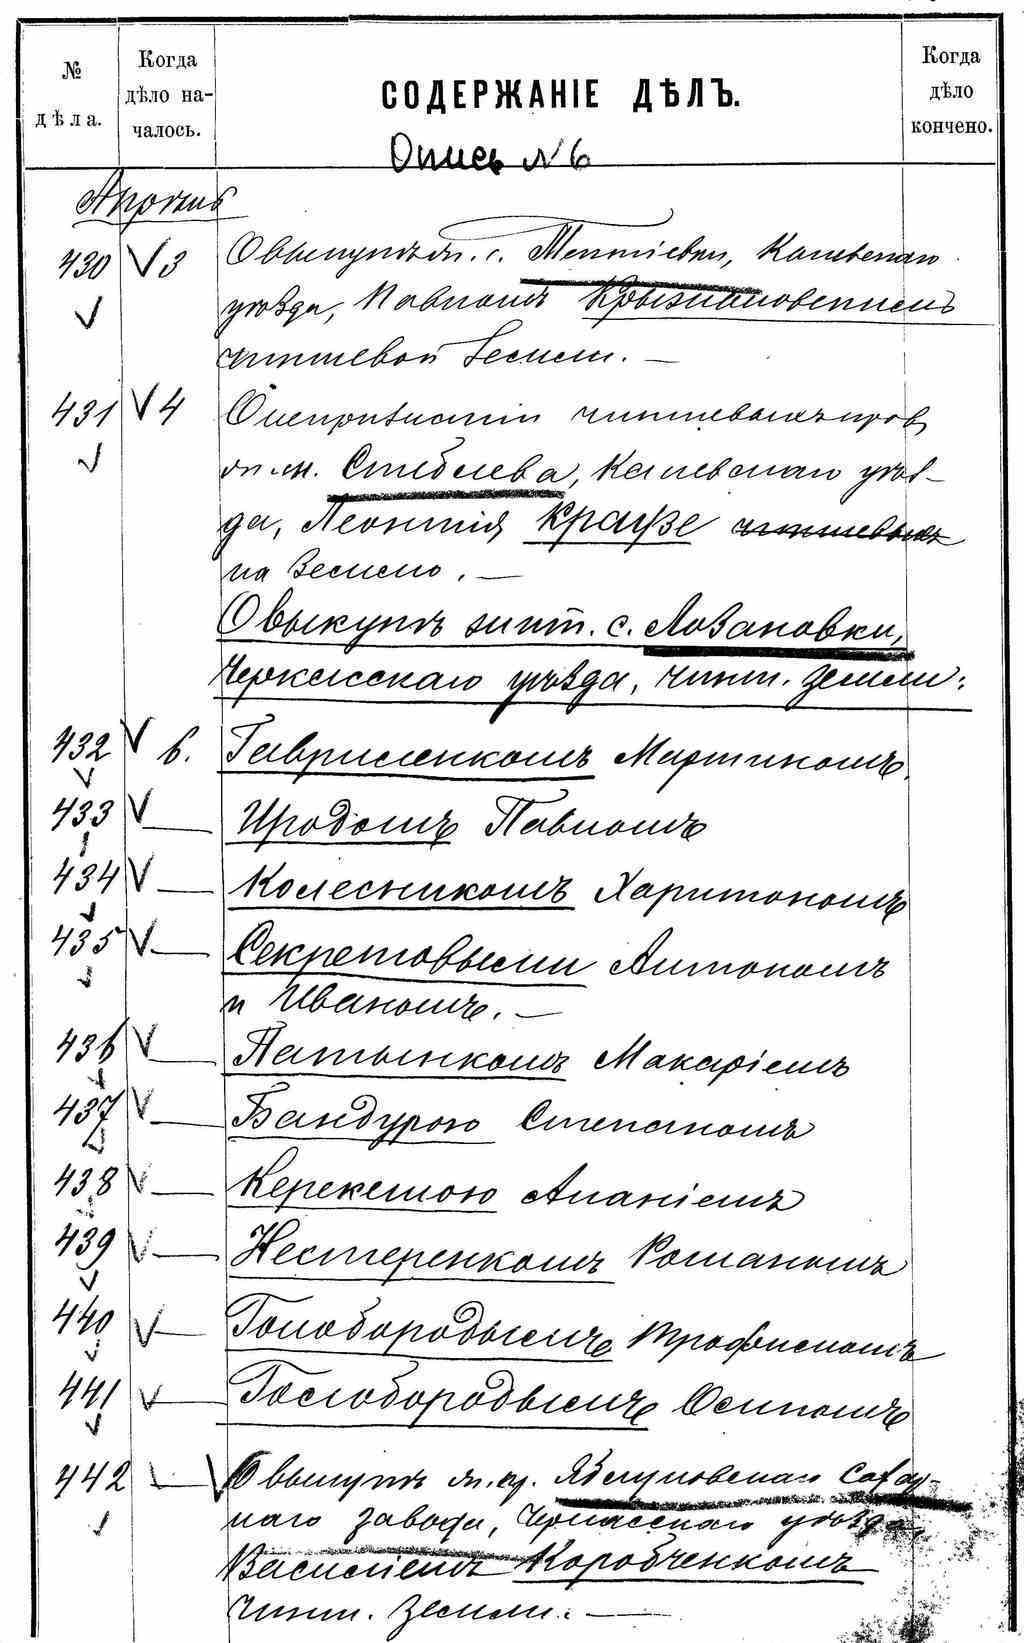 №
дѣла.
Когда
дѣло на-
чалось.
СОДЕРЖАНІЕ ДѢЛЪ.
Когда
дѣло
кончено.
Опись №6
Апрѣль
430 3 О выкупѣ с. Каневскаго
уѣзда, Павломъ Крыжановскимъ
чиншевой земли. —
431 4 чиншевыхъ прав
жит. м. Стеблева, Каневскаго уѣз-
да, Леонтія Краузе чиншевыхъ
на землю. —
О выкупѣ жит. с. Лозановки,
Черкасскаго уѣзда, чинш. земли:
432 6. Гавриленкомъ Мартиномъ.
433 — Иродомъ Павломъ
434 — Колесникомъ Харитономъ
435 — Секретовыми Антономъ
и Иваномъ. —
436 — Латынкомъ Макаріемъ
437 — Бандурою Степаномъ
438 — Керекетою Ананіемъ
439 — Нестеренкомъ Романомъ
440 — Голобородымъ Трофимомъ
441 — Голобородымъ Осипомъ
442 — О выкупѣ Яблуновскаго Сахар-
наго завода, Черкасскаго уѣзда,
Василіемъ Коробченкомъ
чинш. земли. —